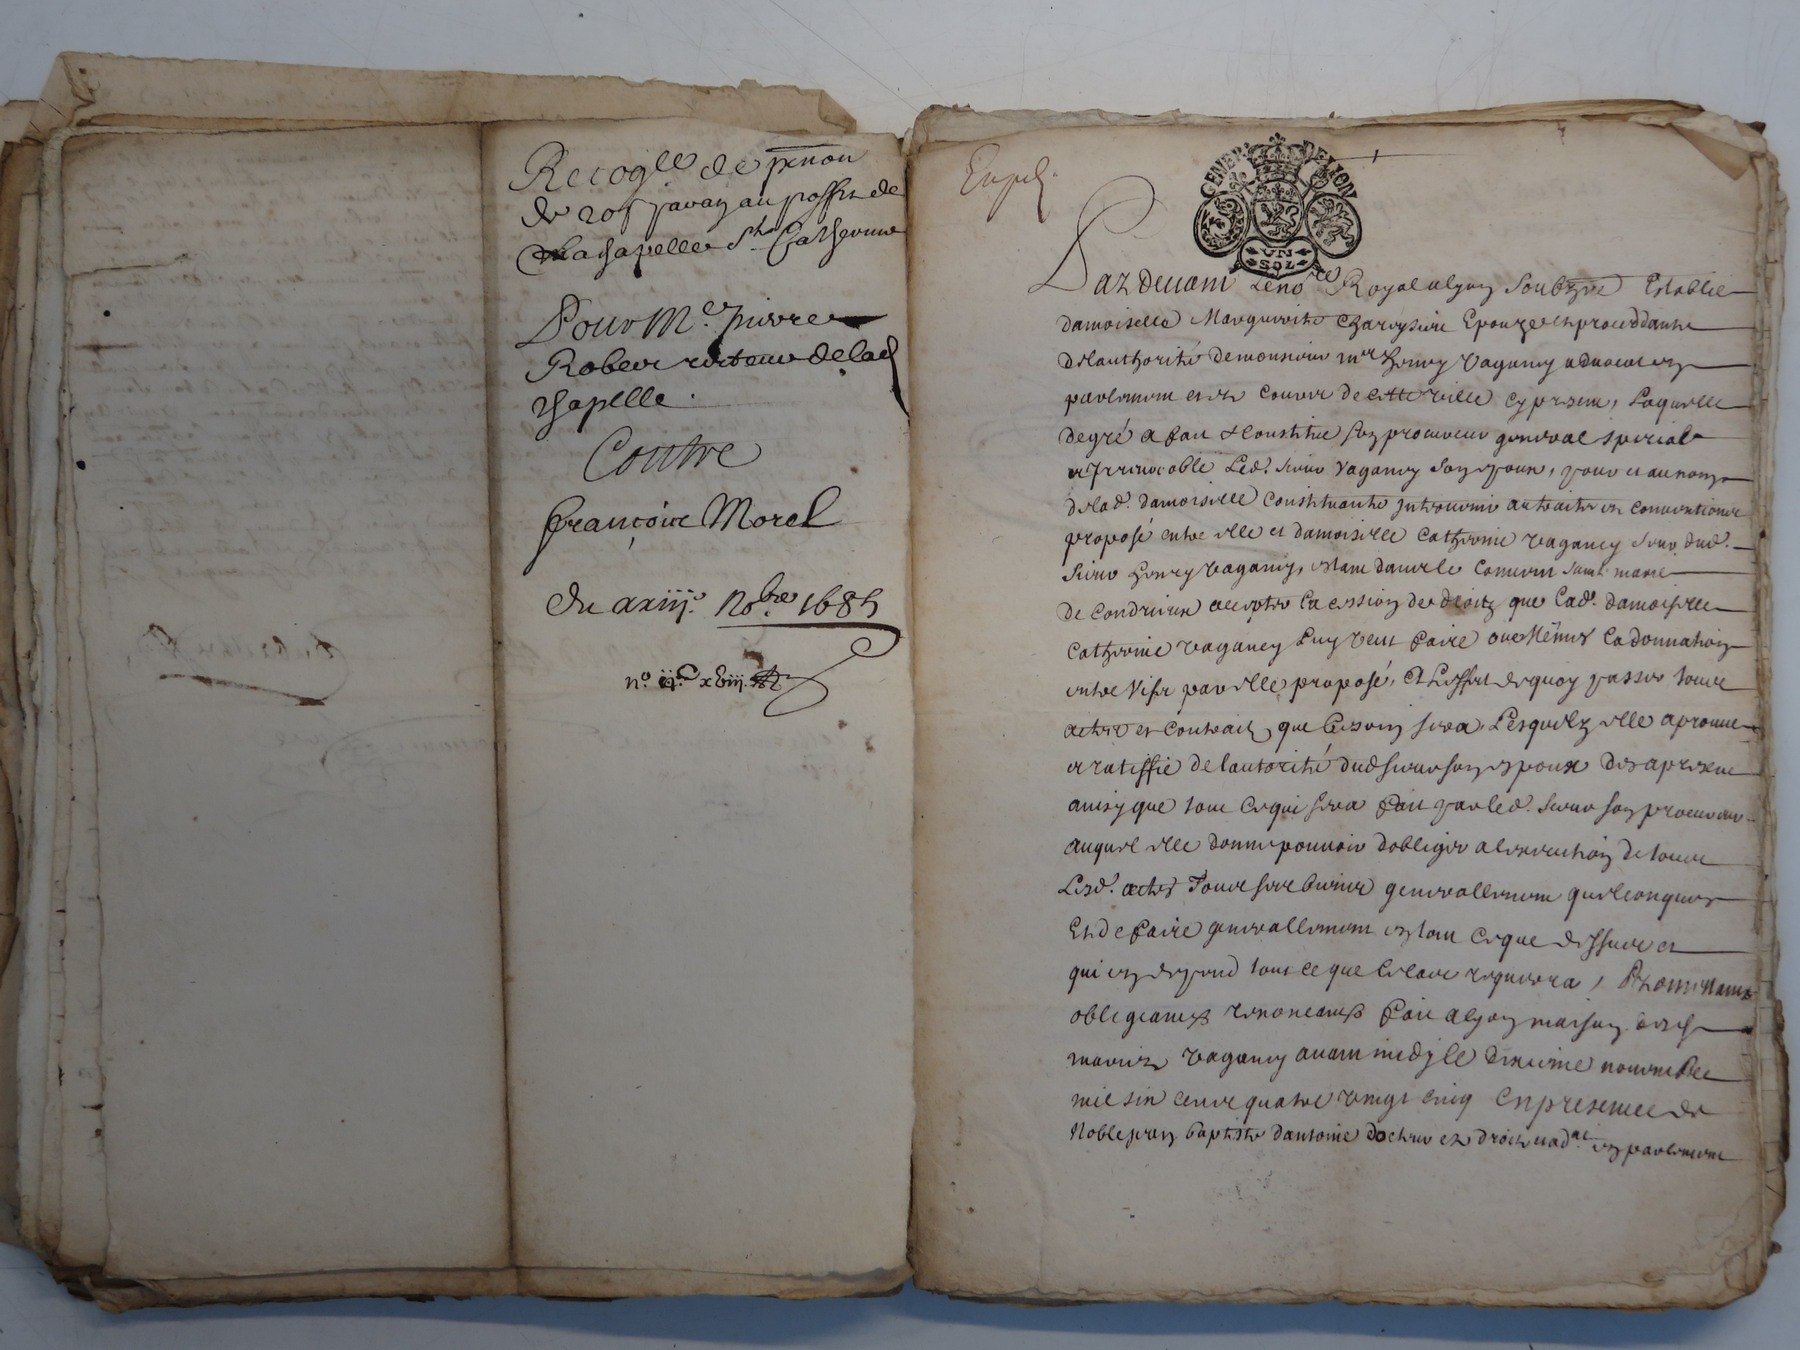 Recog.lle de pen̄on
de 20s payay au proffit de
la chapelle Ste Catherine
Pour Me pierre
Robert recteur de lad
chapelle.
Contre
françoise Morel
Du xxiije Nobre 1685
no. ijc xviij
Expd.
GENER. DE LION
UN
SOL
Par devant Le nore Royal a lyon soubzne Establie
damoiselle Marguerite Charepieu Epouze et proceddante
de lauthorité de monsieur mer henry Vaganey advocat en
parlement et es Cours de cette ville cy present, Laquelle
de gré a fait et Constitue son procureur general special
et Irrevocable Led. sieur Vaganey son epoux, pour et au nom
de lad. damoiselle Constituante Intervenir au traité et conventions
proposé entre elle et damoiselle Catherine vaganey seur dud.
sieur henry vaganey, estant dans le Convent sainte marie
de Condrieux accepter la cession des droitz que lad. damoiselle
Catherine vaganey luy veut faire ou mesmes la donnation
entre vifz par elle proposé, Et à l'effet de quoy passer toutz
actes et contraitz que besoin sera, Lesquelz elle aprouve
et ratiffie de lautorité dud sieur son espoux des apresent
ainsy que tout ce qui sera fait par led. sieur son procureur
auquel elle donne pouvoir dobliger a lexecution de toutz
Lesd. actes Tous ses biens generallement quelconques
Et de faire generallement en tout ce que dessus et
qui en depend tout ce que le cas requerera, Promettants
obligeants renonceants fait a lyon maison desd
mariez vaganey avant midy le dixieme novembre
mil six centz quatre vingt cinq En presence de
Noble jean baptiste dantoine docteur es droitz et adat en parlement